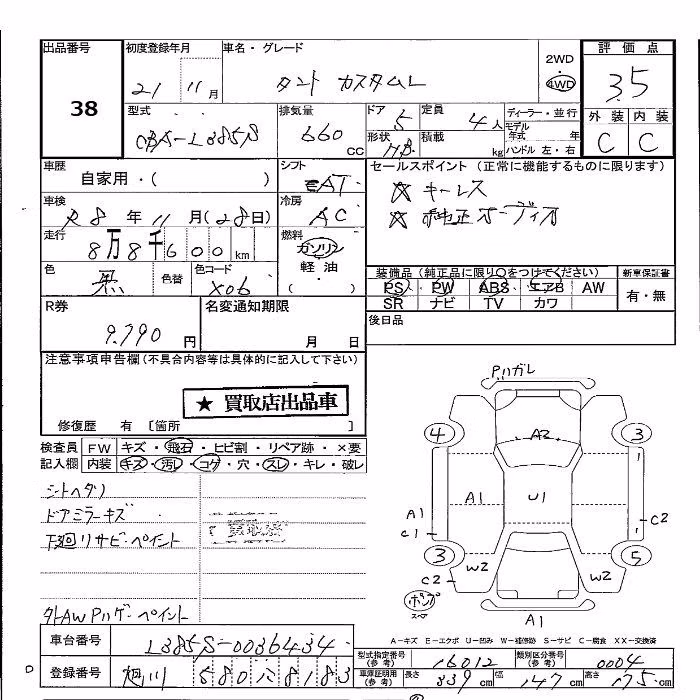 出品番号
38
初度登録年月
21 11月
車名・グレード
タント カスタムL
2WD
4WD
評価点
3.5
外装 内装
C C
型式
CBA-L385S
排気量
660 cc
ドア 5
形状 HB
定員 4人
積載 kg
ディーラー・並行
モデル年式 年
ハンドル 左・右
車歴
自家用・( )
シフト
AT
セールスポイント(正常に機能するものに限ります)
☆ キーレス
☆ 純正オーディオ
車検
R8年11月(28日)
冷房
AC
走行
8万8千600km
燃料
ガソリン
軽油
( )
色
黒
色替
色コード
X06
装備品(純正品に限り○をつけてください)
PS PW ABS エアB AW
SR ナビ TV カワ
新車保証書
有・無
R券
9,790円
名変通知期限
月 日
後日品
注意事項申告欄(不具合内容等は具体的に記入して下さい)
★ 買取店出品車
修復歴 有 [箇所 ]
検査員記入欄
FW キズ・飛石・ヒビ割・リペア跡・×要
内装 キズ・汚レ・コゲ・穴・スレ・キレ・破レ
シートヘタリ
ドアミラーキズ
下廻リサビ・ペイント
買取店
外AW Pハゲ・ペイント
Pハガレ
4
A2
3
A1
U1
A1
C1
C2
3
W2
W2
5
C2
A1
A-キズ E-エクボ U-凹み W-補修跡 S-サビ C-腐食 XX-交換済
車台番号
L385S-0036434
登録番号
旭川 580 8183
型式指定番号(参考)
16012
類別区分番号(参考)
0004
車庫証明用(参考)
長さ 339cm
幅 147cm
高さ 175cm